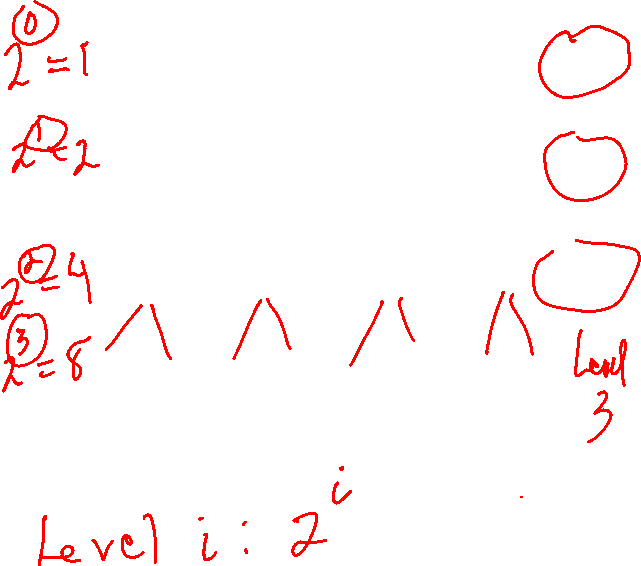 2^0 = 1
2^1 = 2
2^2 = 4
2^3 = 8
Level
3
Level i : 2^i